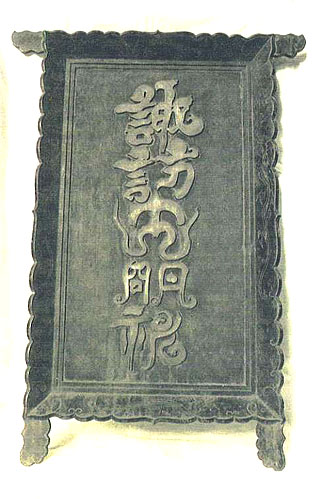 諏訪大明神